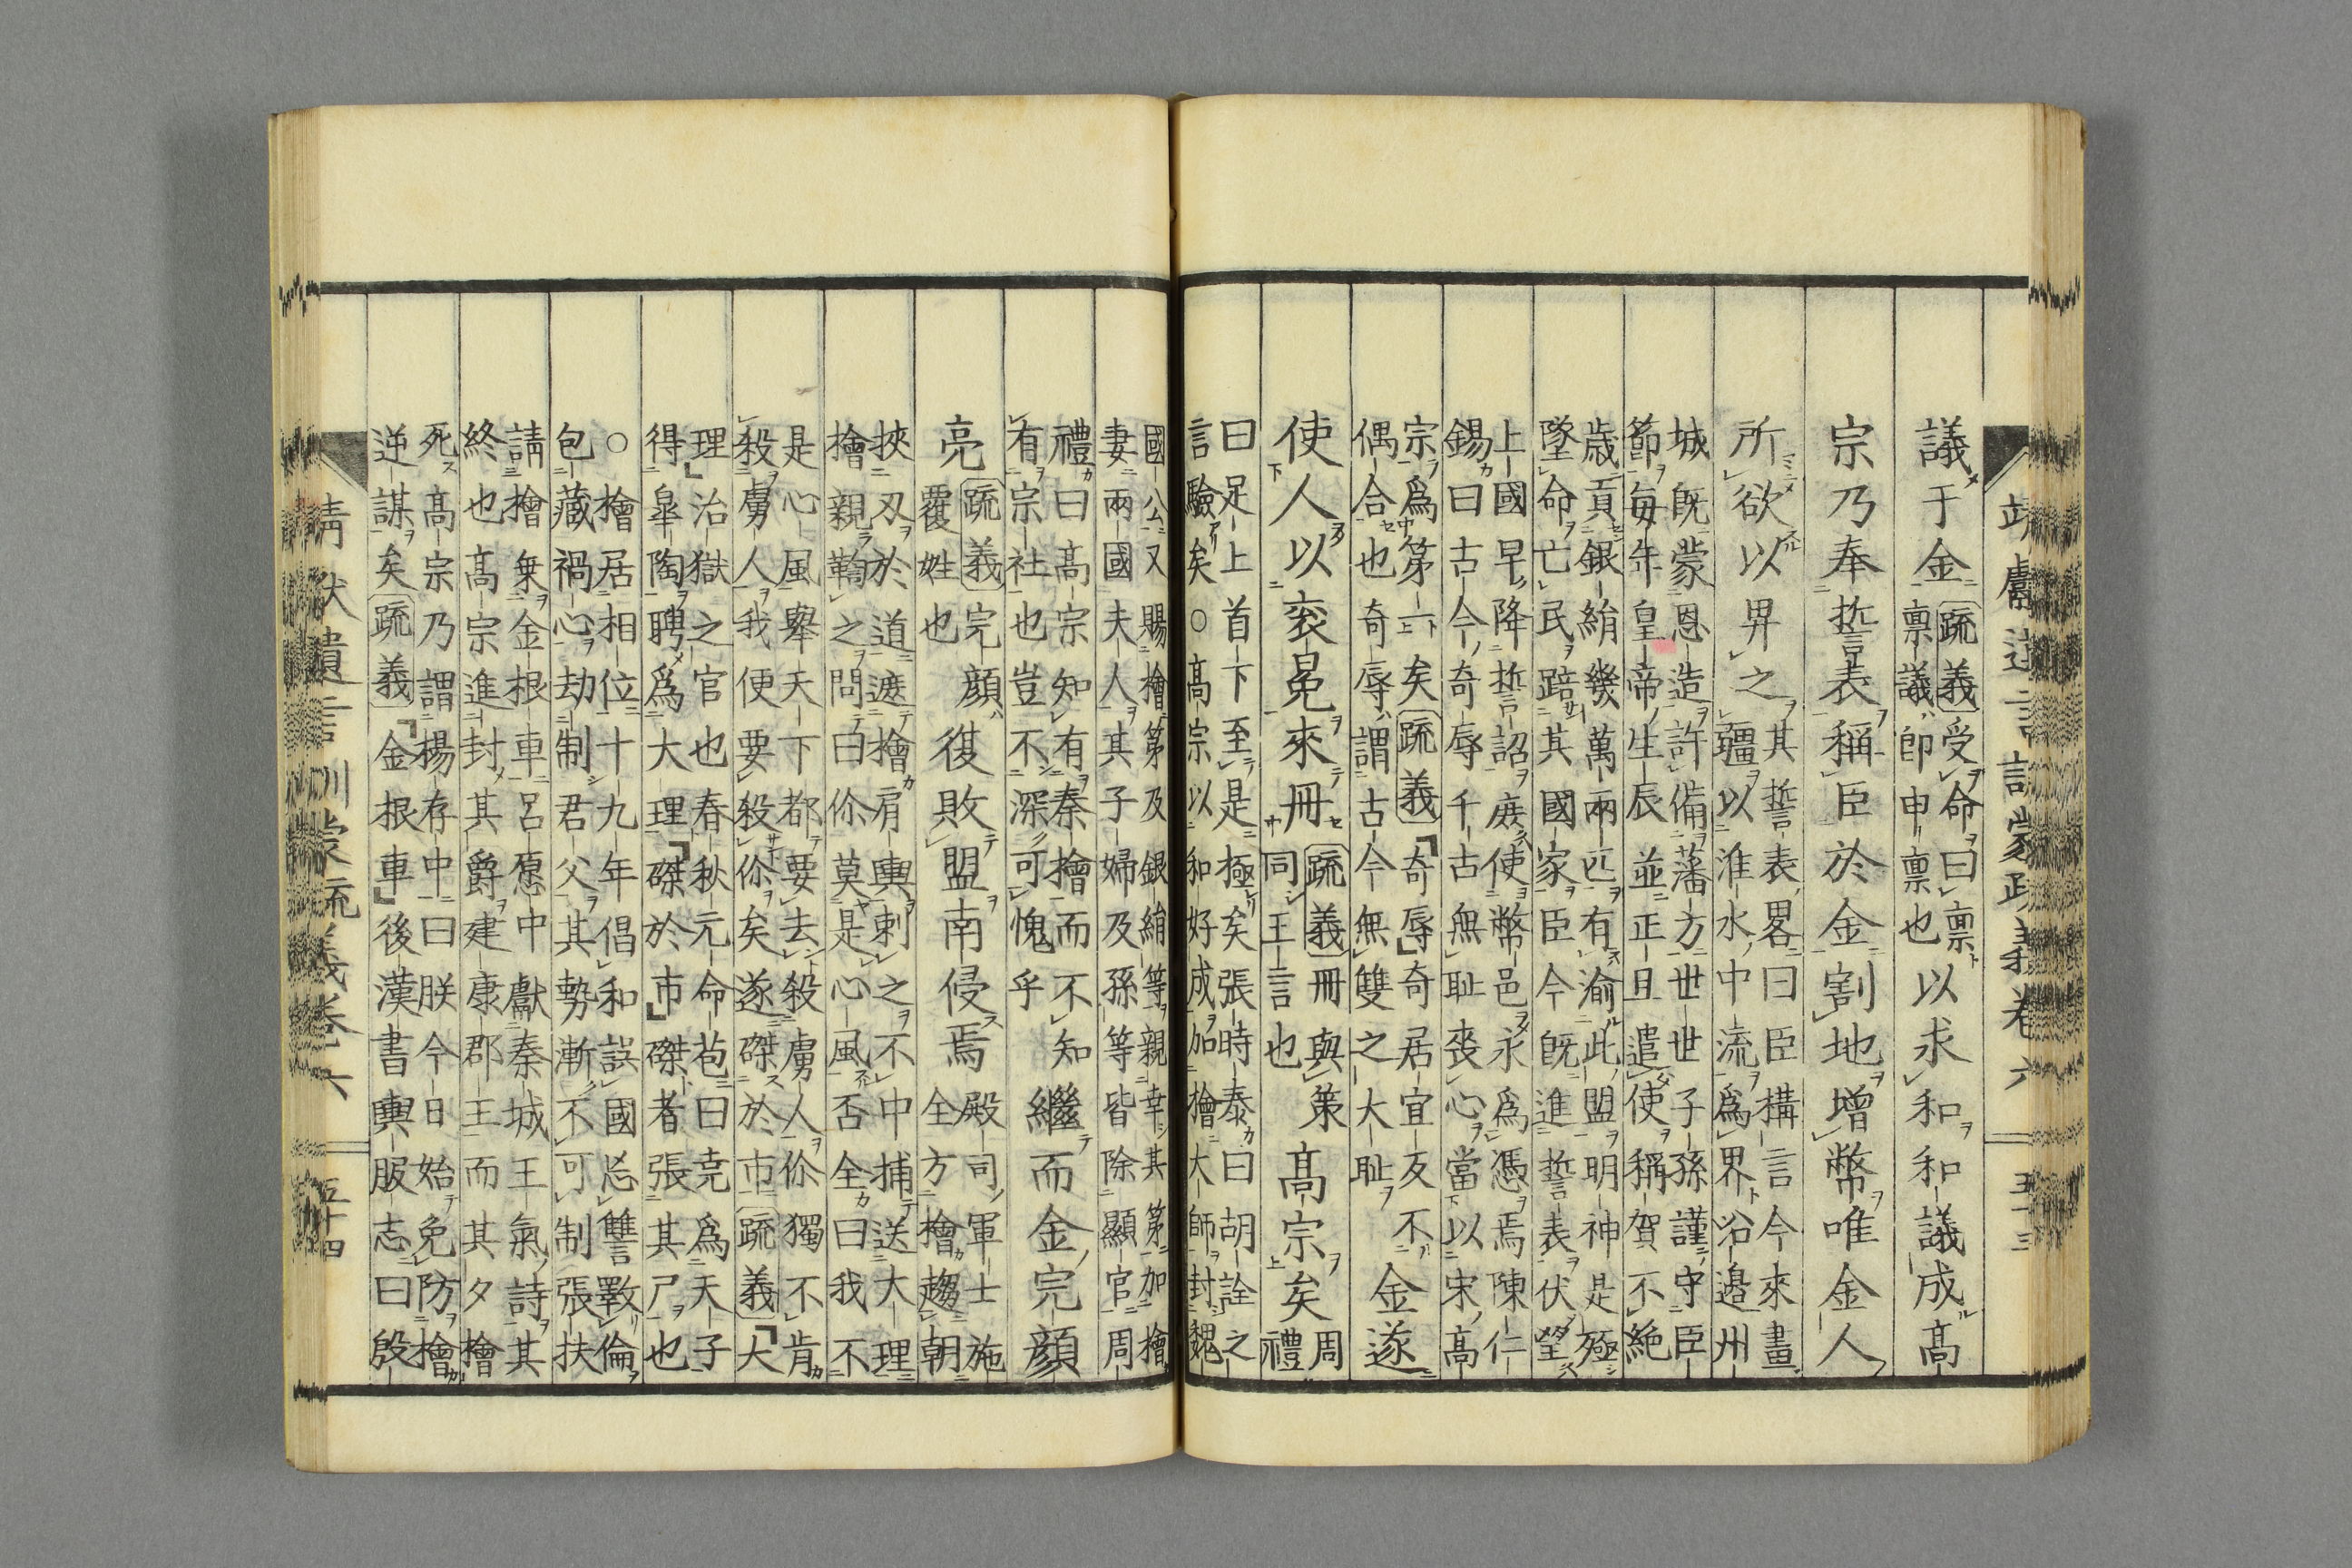 靖獻遺言訓蒙疏義卷六 五十三
議于金〔疏義〕受命曰稟
稟議卽申稟也以求和和議成高
宗乃奉誓表稱臣於金割地增幣唯金人
所欲以畀之其誓表畧曰臣構言今來畫
疆以淮水中流爲界沿邊州
城旣蒙恩造許備藩方世世子孫謹守臣
節每年皇帝生辰並正旦遣使稱賀不絶
歲貢銀絹幾萬兩匹有渝此盟明神是殛
墜命亡民踣其國家臣今旣進誓表伏望
上國早降誓詔庶使幣邑永爲憑焉陳仁
錫曰古今奇辱千古無耻喪心當以宋高
宗爲第一矣〔疏義〕奇辱奇居宜反不
偶合也奇辱謂古今無雙之大耻金遂
使人以袞冕來冊〔疏義〕冊與策
同王言也高宗矣周
禮
曰足上首下至是極矣張時泰曰胡詮之
言驗矣○高宗以和好成加檜大師封魏
國公又賜檜第及銀絹等親幸其第加檜
妻兩國夫人其子婦及孫等皆除顯官周
禮曰高宗知有秦檜而不知
有宗社也豈不深可愧乎繼而金完顏
亮〔疏義〕完顏
覆姓也復敗盟南侵焉殿司軍士施
全方檜趨朝
挾刃於道遮檜肩輿刺之不中捕送大理
檜親鞫之問曰你莫是心風否全曰我不
是心風舉天下都要去殺虜人你獨不肯
殺虜人我便要殺你矣遂磔於市〔疏義〕大
理治獄之官也春秋元命苞曰堯爲天子
得皐陶聘爲大理磔於市磔者張其尸也
○檜居相位十九年倡和誤國忘讐斁倫
包藏禍心劫制君父其勢漸不可制張扶
請檜乗金根車呂愿中獻秦城王氣詩其
終也高宗進封其爵建康郡王而其夕檜
死高宗乃謂楊存中曰朕今日始免防檜
逆謀矣〔疏義〕金根車後漢書輿服志曰殷
靖獻遺言訓蒙疏義卷六 五十四